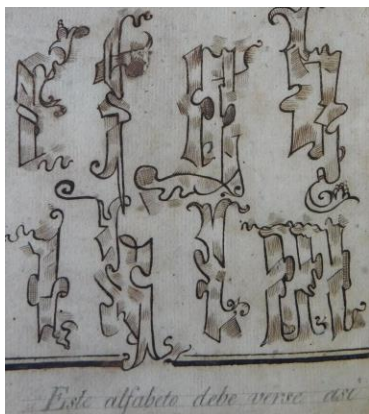 e f g h
i k l m
Este alfabeto debe verse asi